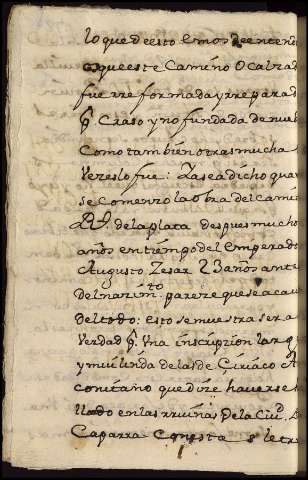 lo que de esto emos de entend
es que este Camino O calzad
fue rre formada y rre parad
q̃ Craso y no fundada de nueb
Como tambien otras mucha
Vezes lo fue: Zase a dicho quan
se Comenzo la obra del cami
de la plata despues mucho
años en tiempo del Emperado
Augusto Zesar 23 años ante
del nazimto pareze que se aca
del todo: esto se muestra ser a
Verdad q̃. Una inscripzion larg
y mui linda de las de Ciriaco A
conitano que dize haverse
llado en las rruinas De la Ciu.
Caparra Consta s letra